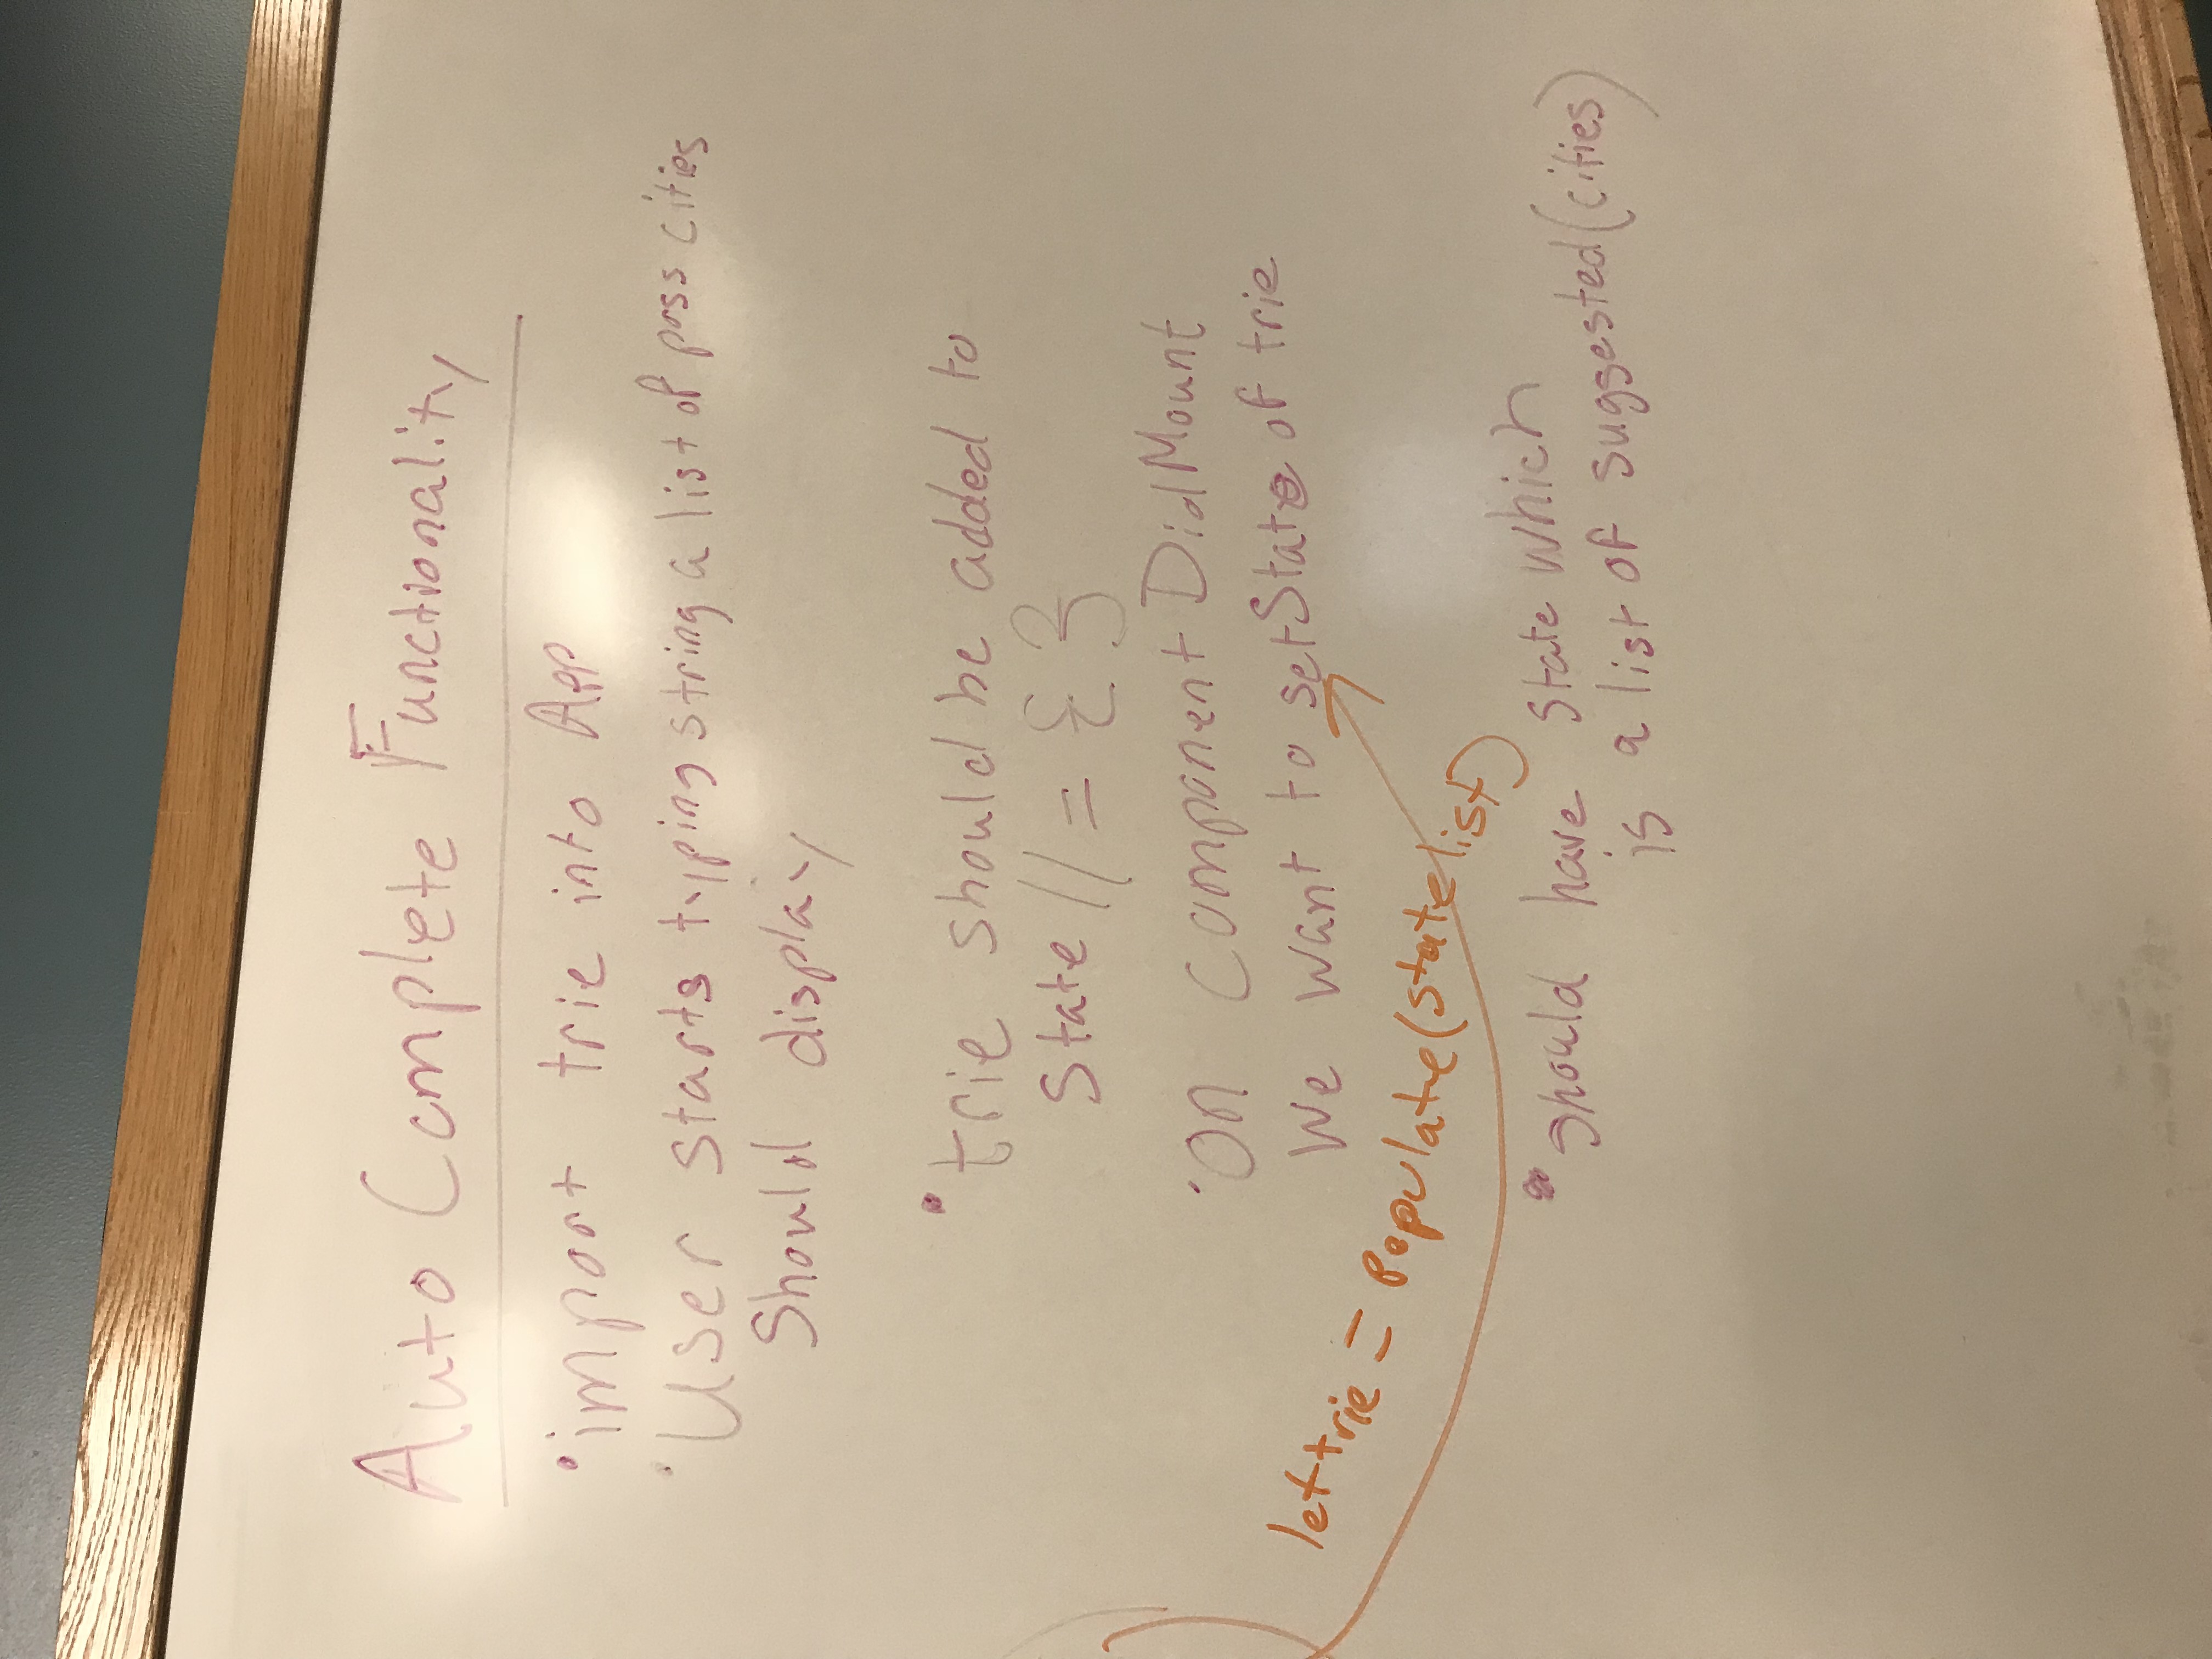 Auto Complete Functionality
• import trie into App
• User starts typing string a list of poss cities
Should display
• trie should be added to
State // = { }
• On Component DidMount
We want to setState of trie
let trie = Populate(statelist)
• should have state which
is a list of suggested (cities)